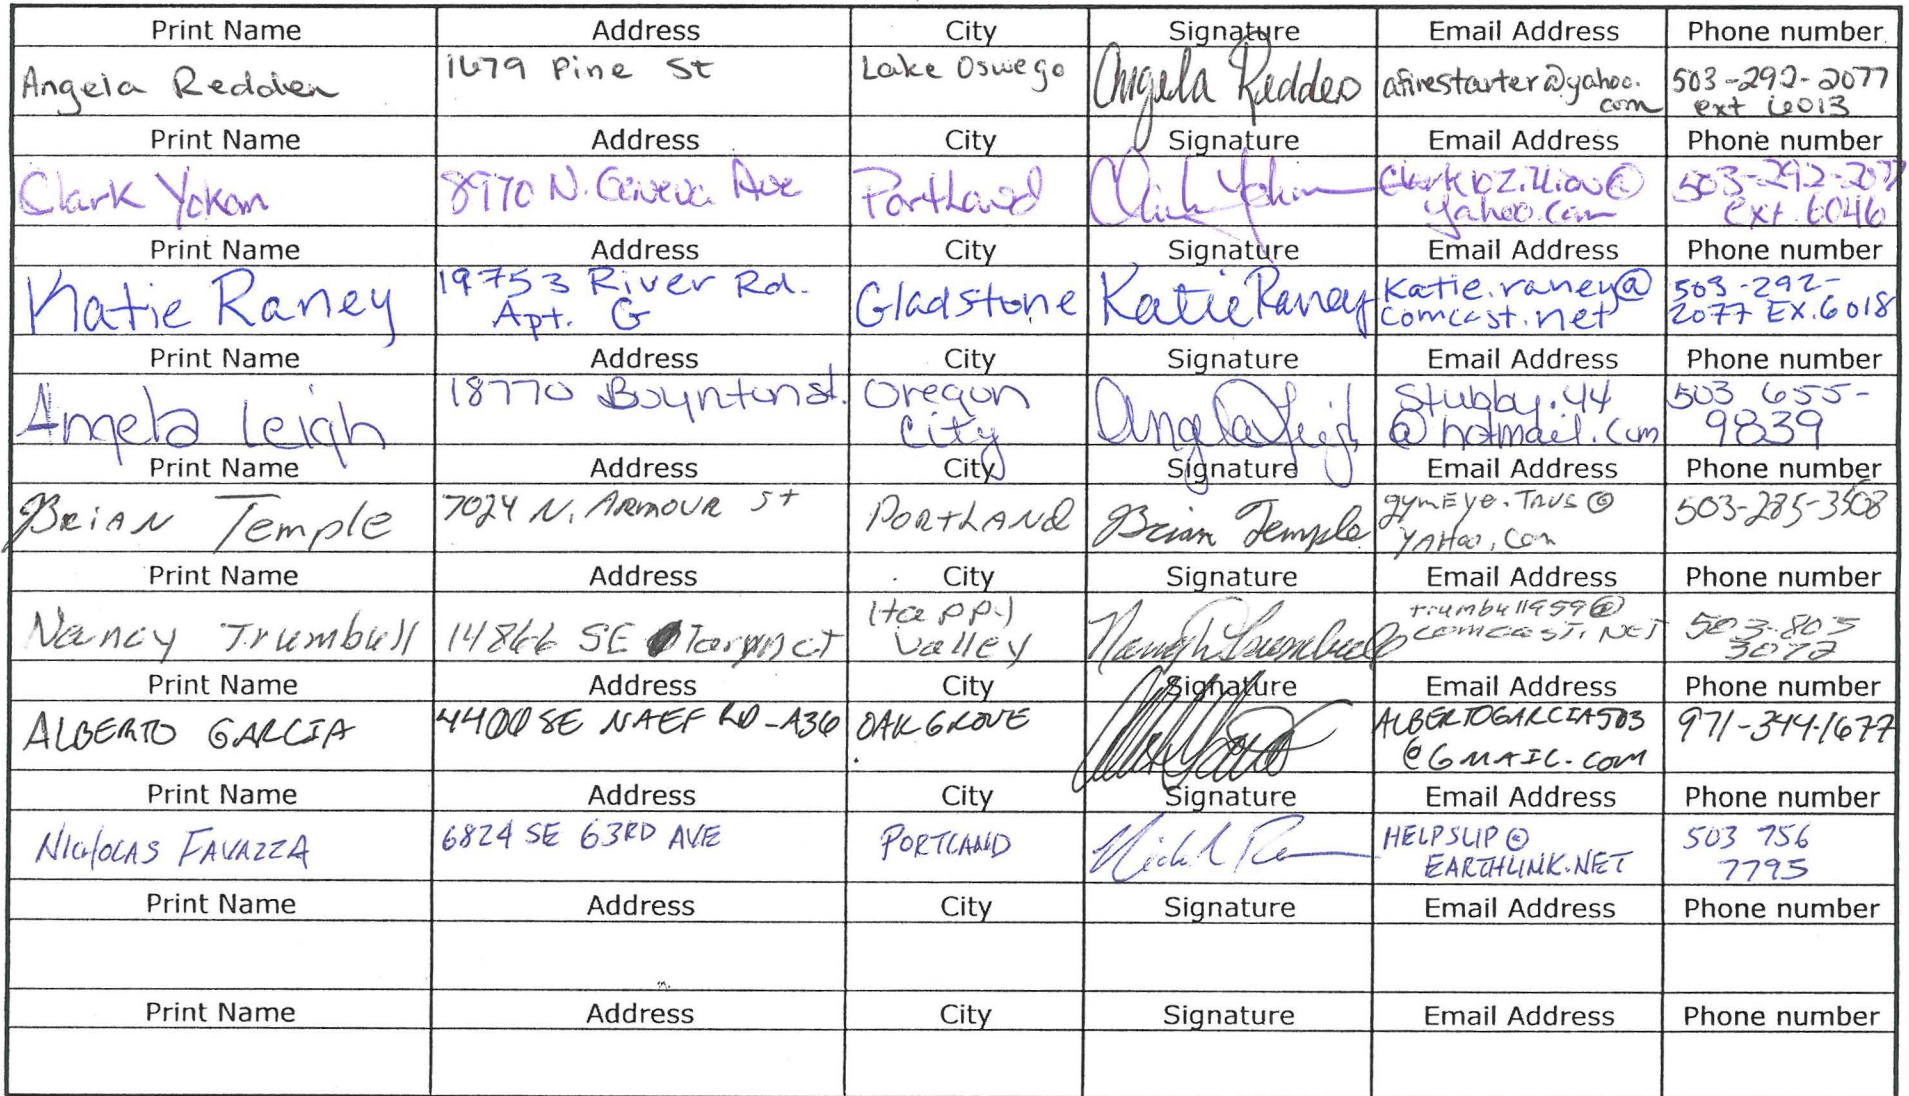 Print Name Address City Signature Email Address Phone number
Angela Redden 1679 Pine St Lake Oswego Angela Redden afirestarter@yahoo. 503-292-2077
com ext 6013
Print Name Address City Signature Email Address Phone number
Clark Yokom 8970 N. Geneva Ave Portland 503-292-2077
yahoo.com ext. 6046
Print Name Address City Signature Email Address Phone number
Katie Raney 19753 River Rd. Gladstone Katie Raney Katie.raney@ 503-292-
Apt. G comcast.net 2077 EX.6018
Print Name Address City Signature Email Address Phone number
Angela Leigh 18770 Boynton st. Oregon Angela Leigh Stubby.44 503 655-
City @hotmail.com 9839
Print Name Address City Signature Email Address Phone number
BRIAN Temple 7024 N. ARMOUR St PORTLAND Brian Temple 503-285-3508
YAHOO.COM
Print Name Address City Signature Email Address Phone number
Nancy Trumbull 14866 SE Happy trumbull959@ 503-803
Valley COMCAST.NET 3072
Print Name Address City Signature Email Address Phone number
ALBERTO GARCIA 4400 SE NAEF RD-A36 OAK GROVE ALBERTOGARCIA503 971-344-1677
@GMAIL.COM
Print Name Address City Signature Email Address Phone number
NICHOLAS FAVAZZA 6824 SE 63RD AVE PORTLAND HELPSLIP@ 503 756
EARTHLINK.NET 7795
Print Name Address City Signature Email Address Phone number
Print Name Address City Signature Email Address Phone number